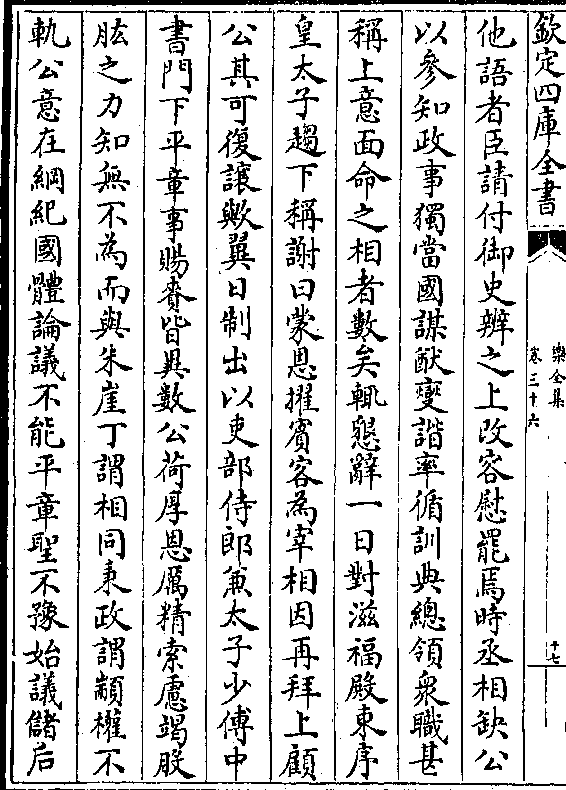 欽定四庫全書
樂全集
卷三十六
十七
他語者臣請付御史辨之上改容慰罷焉時丞相缺公
以參知政事獨當國謀猷燮諧率循訓典總領衆職甚
稱上意面命之相者數矣輒懇辭一日對滋福殿東序
皇太子趨下稱謝曰蒙恩擢賓客為宰相因再拜上顧
公其可復讓歟翼日制出以吏部侍郎兼太子少傅中
書門下平章事賜賚皆異數公荷厚恩厲精索慮竭股
肱之力知無不為而與朱崖丁謂相同秉政謂顓權不
軌公意在綱紀國體論議不能平章聖不豫始議儲后